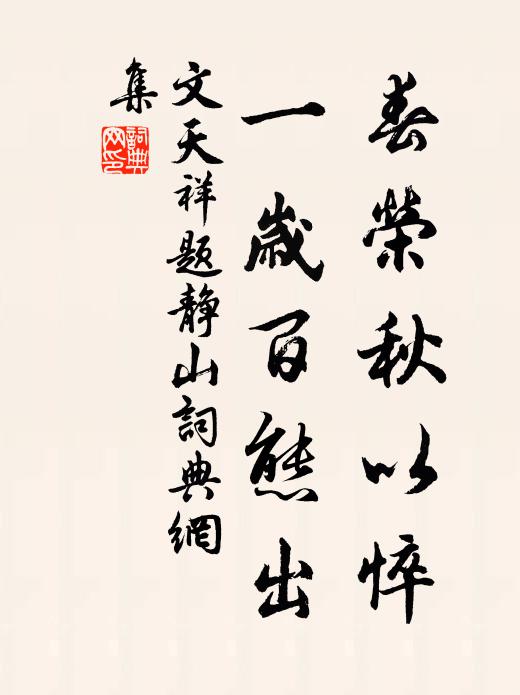 春榮秋以悴
一歲百態出
文天祥題靜山詞典網
集
詞典網印